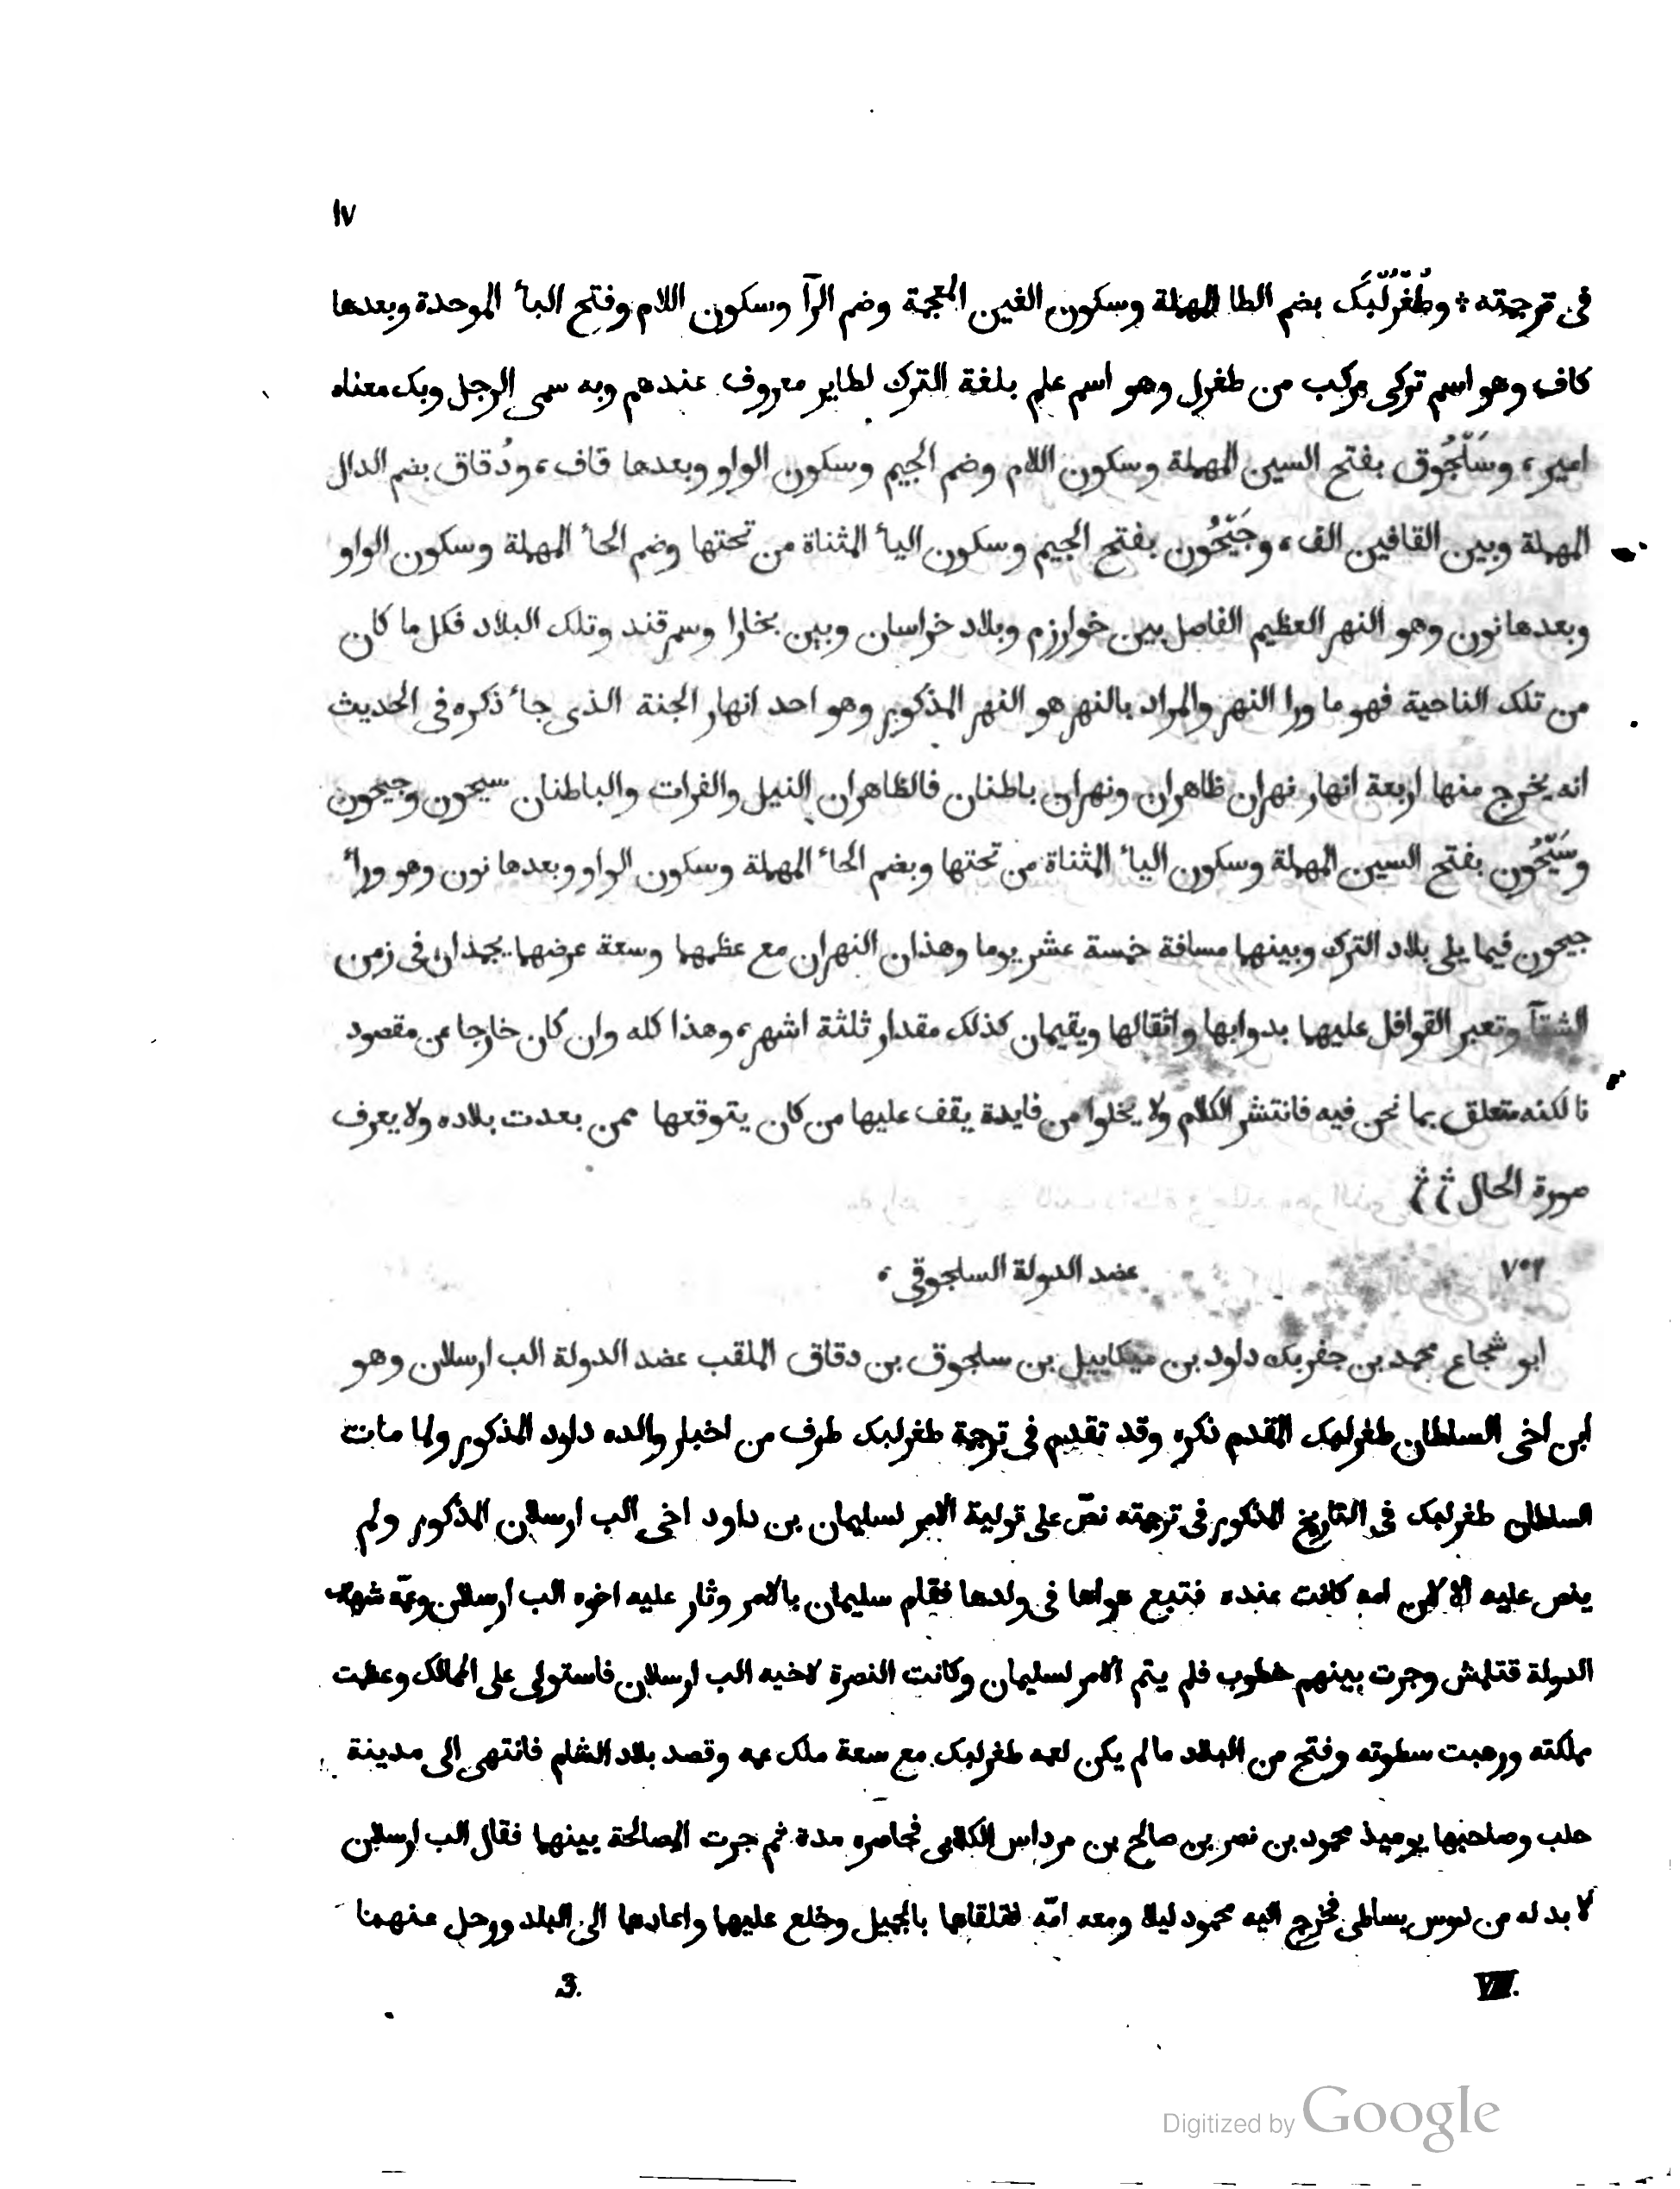 ١٧
فى ترجمته ؛ وطُغْرُلْبَك بضم الطا المهملة وسكون الغين المعجمة وضم الرآ وسكون اللام وفتح البأ الموحدة وبعدها
كاف وهو اسم تركى مركب من طغرل وهو اسم علم بلغة الترك لطاير معروف عندهم وبه سمى الرجل وبك معناه
امير، وسَلْجُوق بفتح السين المهملة وسكون اللام وضم الجيم وسكون الواو وبعدها قاف، ودُقاق بضم الدال
المهملة وبين القافين الف، وجَيْحُون بفتح الجيم وسكون اليأ المثناة من تحتها وضم الحأ المهملة وسكون الواو
وبعدها نون وهو النهر العظيم الفاصل بين خوارزم وبلاد خراسان وبين بخارا وسمرقند وتلك البلاد فكل ما كان
من تلك الناحية فهو ما ورا النهر والمراد بالنهر هو النهر المذكور وهو احد انهار الجنة الذى جأ ذكره فى الحديث
انه يخرج منها اربعة انهار نهران ظاهران ونهران باطنان فالظاهران النيل والفرات والباطنان سيحون وجيحون
وسَيْحُون بفتح السين المهملة وسكون اليأ المثناة من تحتها وبضم الحأ المهملة وسكون الواو وبعدها نون وهو ورأ
جيحون فيما يلى بلاد الترك وبينهما مسافة خمسة عشر يوما وهذان النهران مع عظمهما وسعة عرضهما يجمدان فى زمن
الشتآ وتعبر القوافل عليهما بدوابها واثقالها ويقيمان كذلك مقدار ثلثة اشهر، وهذا كله وان كان خارجا عن مقصود
نا لكنه متعلق بما نحن فيه فانتشر الكلام ولا يخلوا من فايدة يقف عليها من كان يتوقعها ممن بعدت بلاده ولا يعرف
صورة الحال ؛ ؛
٧٠٢ عضد الدولة السلجوقى،
ابو شجاع محمد بن جغربك داود بن ميكاييل بن سلجوق بن دقاق الملقب عضد الدولة الب ارسلان وهو
ابن اخى السلطان طغرلبك المقدم ذكره وقد تقدم فى ترجمة طغرلبك طرف من اخبار والده داود المذكور ولما مات
السلطان طغرلبك فى التاريخ المذكور فى ترجمته نصّ على تولية الامر لسليمان بن داود اخى الب ارسلان المذكور ولم
ينص عليه الا لان امه كانت عنده فتبع هواها فى ولدها فقام سليمان بالامر وثار عليه اخوه الب ارسلان وعمّه شهاب
الدولة قتلمش وجرت بينهم خطوب فلم يتم الامر لسليمان وكانت النصرة لاخيه الب ارسلان فاستولى على الممالك وعظمت
مملكته ورهبت سطوته وفتح من البلاد ما لم يكن لعمه طغرلبك مع سعة ملك عمه وقصد بلاد الشام فانتهى الى مدينة
حلب وصاحبها يوميذ محمود بن نصر بن صالح بن مرداس الكلابى فحاصره مدة ثم جرت المصالحة بينهما فقال الب ارسلان
لا بد له من دوس بساطى فخرج اليه محمود ليلا ومعه امّه فتلقاهما بالجميل وخلع عليهما واعادهما الى البلد ورحل عنهمنا
VIII. 3.
Digitized by Google